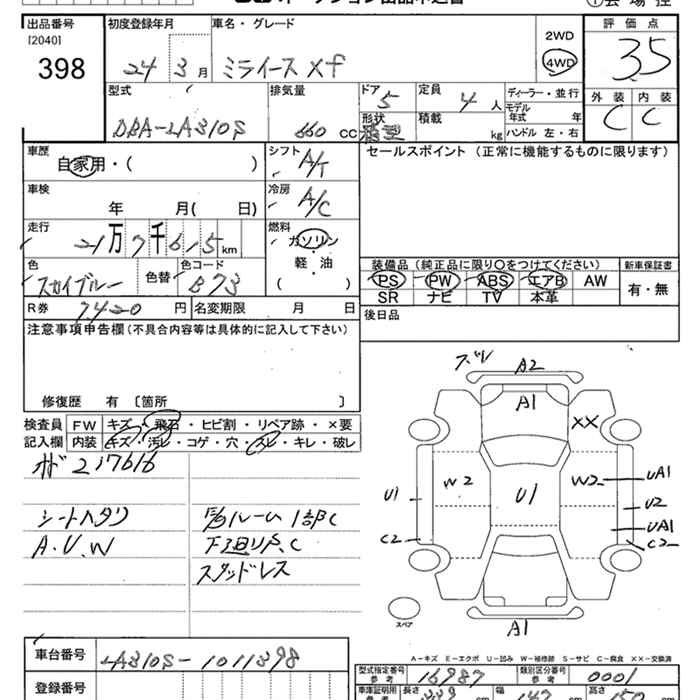 出品番号
[2040]
398
初度登録年月
24 3月
車名・グレード
ミライース Xf
2WD
4WD
評価点
3.5
外装 内装
C C
型式
DBA-LA310S
排気量
660 CC
ドア
5
形状
定員
4 人
積載
kg
ディーラー・並行
モデル年式 年
ハンドル 左・右
車歴
自家用・( )
シフト
A/T
セールスポイント (正常に機能するものに限ります)
車検
年 月( 日)
冷房
A/C
走行
21万7千615km
燃料
ガソリン
軽・油
( )
色
スカイブルー
色替
色コード
B73
装備品 (純正品に限り○をつけてください)
新車保証書
PS PW ABS エアB AW
有・無
SR ナビ TV 本革
R券
7420 円
名変期限 月 日
後日品
注意事項申告欄(不具合内容等は具体的に記入して下さい)
修復歴 有 〔箇所 〕
検査員記入欄
FW キズ・飛石・ヒビ割・リペア跡・×要
内装 キズ・汚レ・コゲ・穴・スレ・キレ・破レ
217616
シートヘタリ
A.U.W
ルーム1部C
下廻りS.C
スタッドレス
ズレ
A2
A1
XX
W2
W2
U1
U1
UA1
U2
UA1
C2
C2
A1
スペア
A-キズ E-エクボ U-凹み W-補修跡 S-サビ C-腐食 XX-交換済
車台番号
LA310S-1011398
型式指定番号
参考
16987
類別区分番号
参考
0001
登録番号
車庫証明用
参考
長さ
幅
高さ